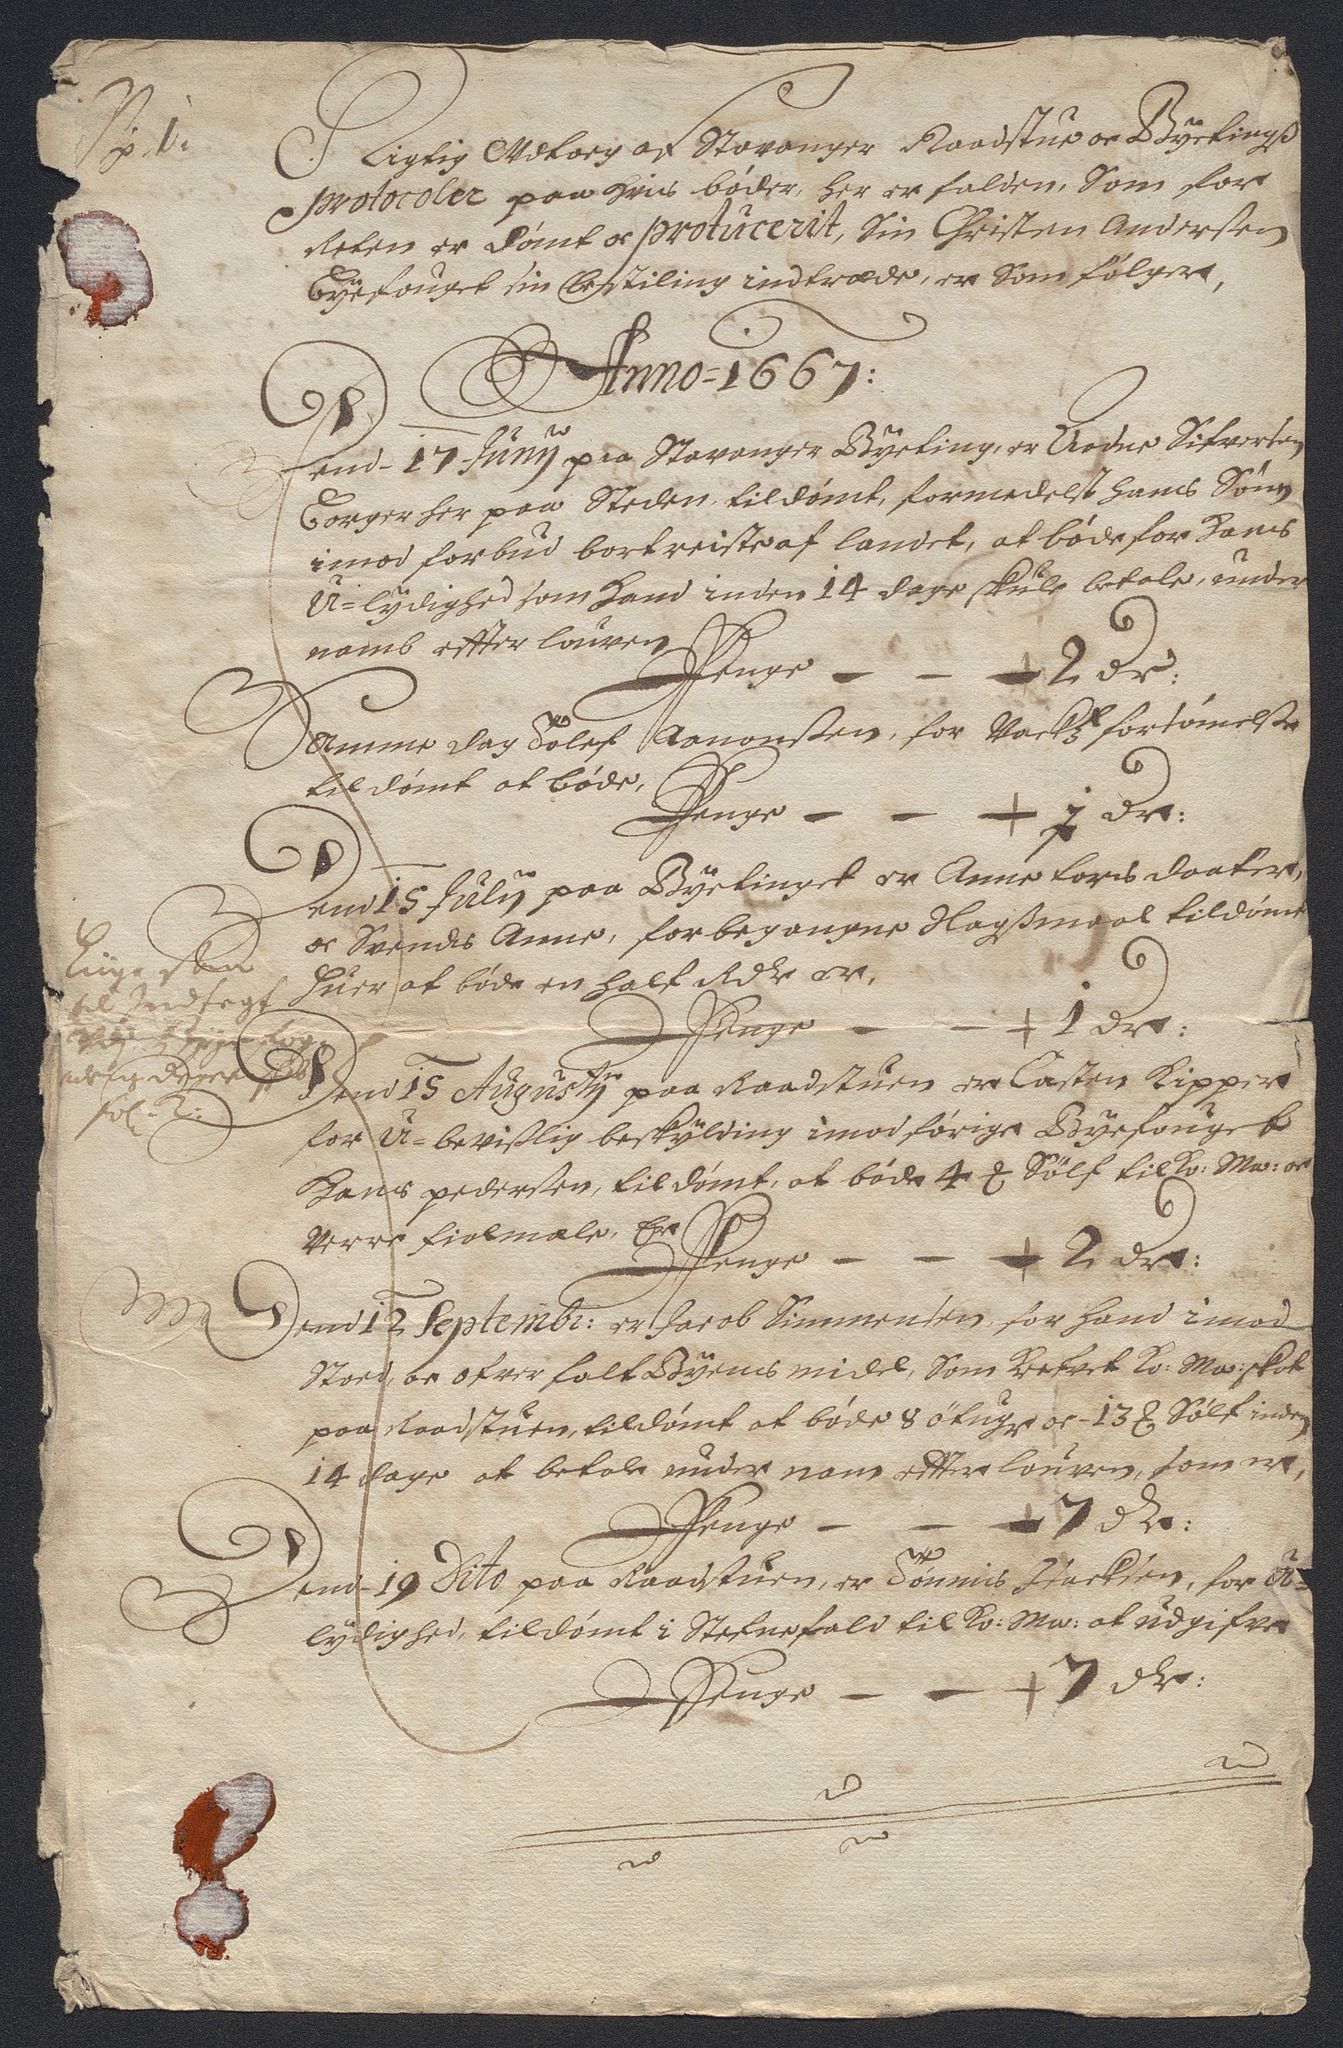 No. 1.
Rigtig Udtoeg af Stavanger Raadstue oc Byetings
protocoler paa hvis bøder, her er falden, Som for
Retten er dømt oc producerit, Sin Christen Andersen
Byefouget sin bestiling indtræde, er Som følger,
Anno = 1667:
Dend - 17 Junij paa Stavanger Byeting, er Aadne Sifversen
Borger her paa Steden, tildømt, formedelst hans Sønn
imod forbud bortreiste af landet, at bøde for hans
U=lydighed som hand inden 14 dage skule betale, under
namb effter louven
Penge - - + 2 dr:
Samme dag Tolef Aanonsen, for Vackt forsømelse
tildømt at bøde,
Penge - - + dr:
Dend 15 Julij paa Byetinget er Anne Lars daater,
oc Svends Anne, for begangne Slagsmaal tildømt
huer at bøde en half Rdr er,
Penge - - + 1 dr:
Dend 15 Augustij paa Raadstuen er Casten Kipper
for U=bevislig beskylding imod forige Byefouget
Hans pedersen, tildømt, at bøde 4 Sølf til Ko: Ma: oc
Verre fielmale, Er
Penge - - + 2 dr:
Dend 12 Septembr: er Jacob Simmensen, for hand imod
Stoed, oc ofver falt Byens midel, Som Krefvet Ko: Ma: skat
paa Raadstuen, tildømt at bøde 8 Ørtuger oc - 13 Sølf inden
14 dage at betale under nam effter louven, som er,
Penge - - + 7 dr:
Dend - 19 Dito paa Raadstuen, er Tønnis Isacksen, for U=
lydighed, tildømt i Stefnefald til Ko: Ma: at udgifve
Penge - - + 7 dr:
til Indtegt
fol. 2: